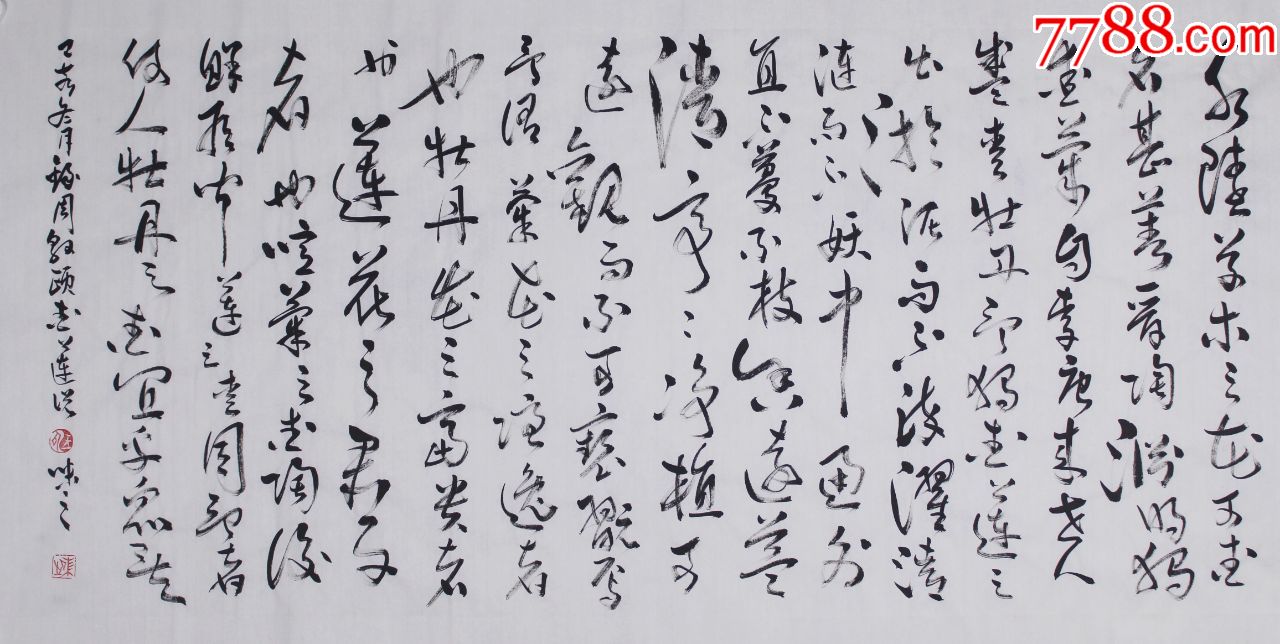 7788.com
水陸草木之花可愛
者甚蕃晉陶淵明獨
愛菊自李唐來世人
盛愛牡丹予獨愛蓮之
出於泥而不染濯清
漣而不妖中通外
直不蔓不枝香遠益
清亭亭淨植可
遠觀而不可褻翫焉
予謂菊花之隱逸者
也牡丹花之富貴者
也蓮花之君子
者也噫菊之愛陶後
鮮有聞蓮之愛同予者
何人牡丹之愛宜乎眾矣
冬月 周敦頤愛蓮說